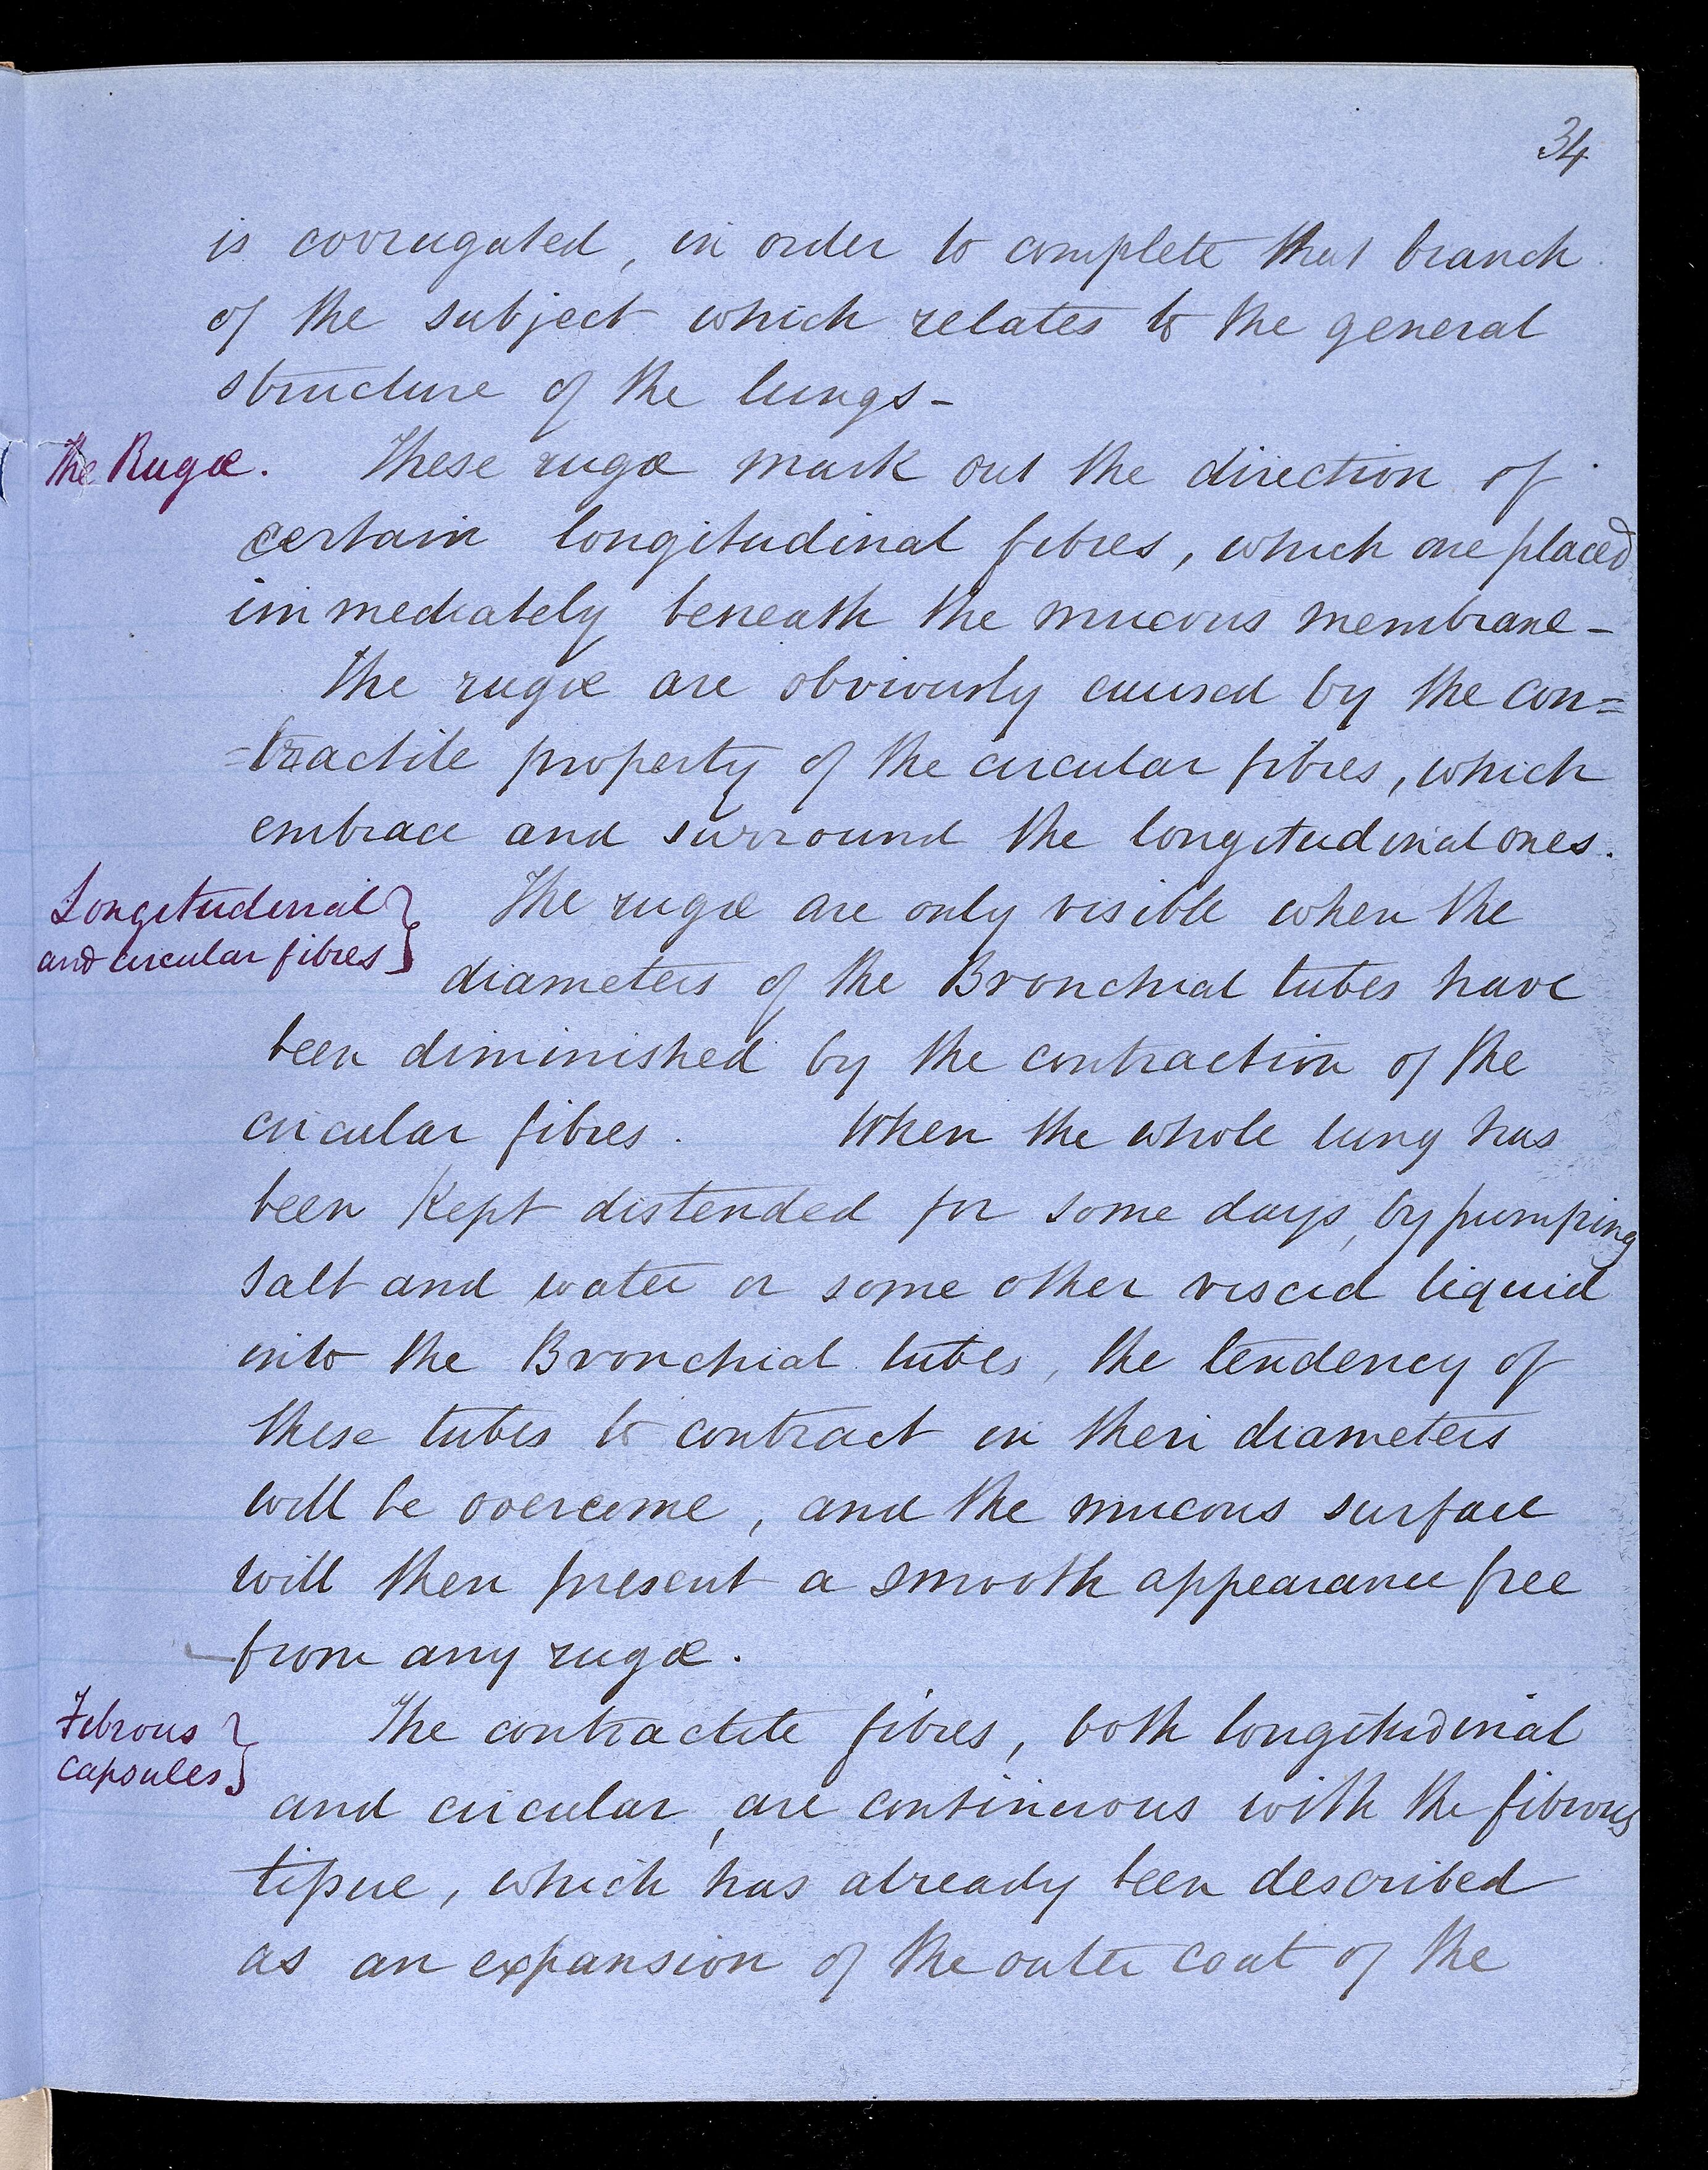 34
is corrugated, in order to complete that branch
of the subject which relates to the general
structure of the lungs -
The Rugæ.
These rugæ mark out the direction of
certain longitudinal fibres, which are placed
immediately beneath the mucous membrane -
The rugæ are obviously caused by the con=
=tractile property of the circular fibres, which
embrace and surround the longitudinal ones.
Longitudinal
and circular fibres}
The rugæ are only visible when the
diameters of the Bronchial tubes have
been diminished by the contraction of the
circular fibres. When the whole lung has
been kept distended for some days, by pumping
salt and water or some other viscid liquid
into the Bronchial tubes, the tendency of
these tubes to contract in their diameters
will be overcome, and the mucous surface
will then present a smooth appearance free
from any rugæ.
Fibrous
capsules}
The contractile fibres, both longitudinal
and circular, are continuous with the fibrous
tissue, which has already been described
as an expansion of the outer coat of the